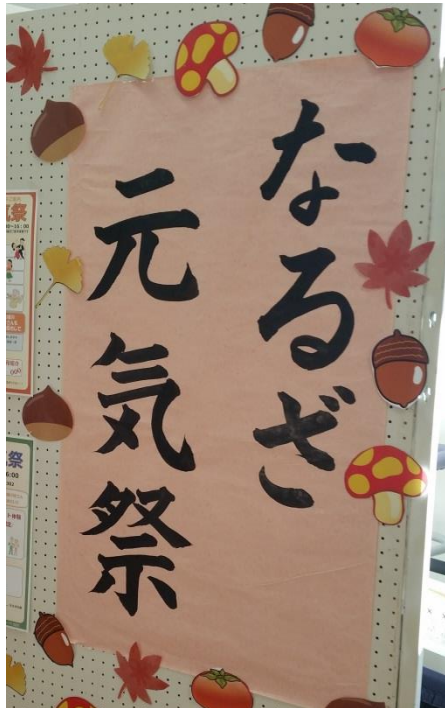 なるざ
元気祭